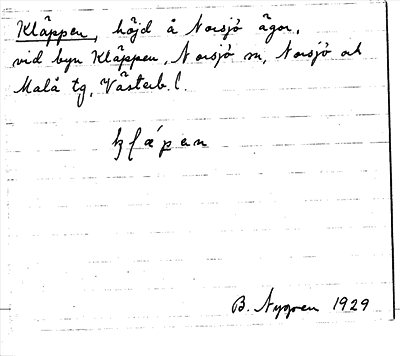 Kläppen, höjd å Norsjö ägor,
vid byn Kläppen, Norsjö sn, Norsjö och
Malå tg, Västerb. l.
B. Nygren 1929